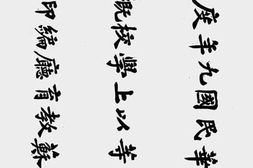 華民國九年度
等以上學校概
蘇教育廳編印